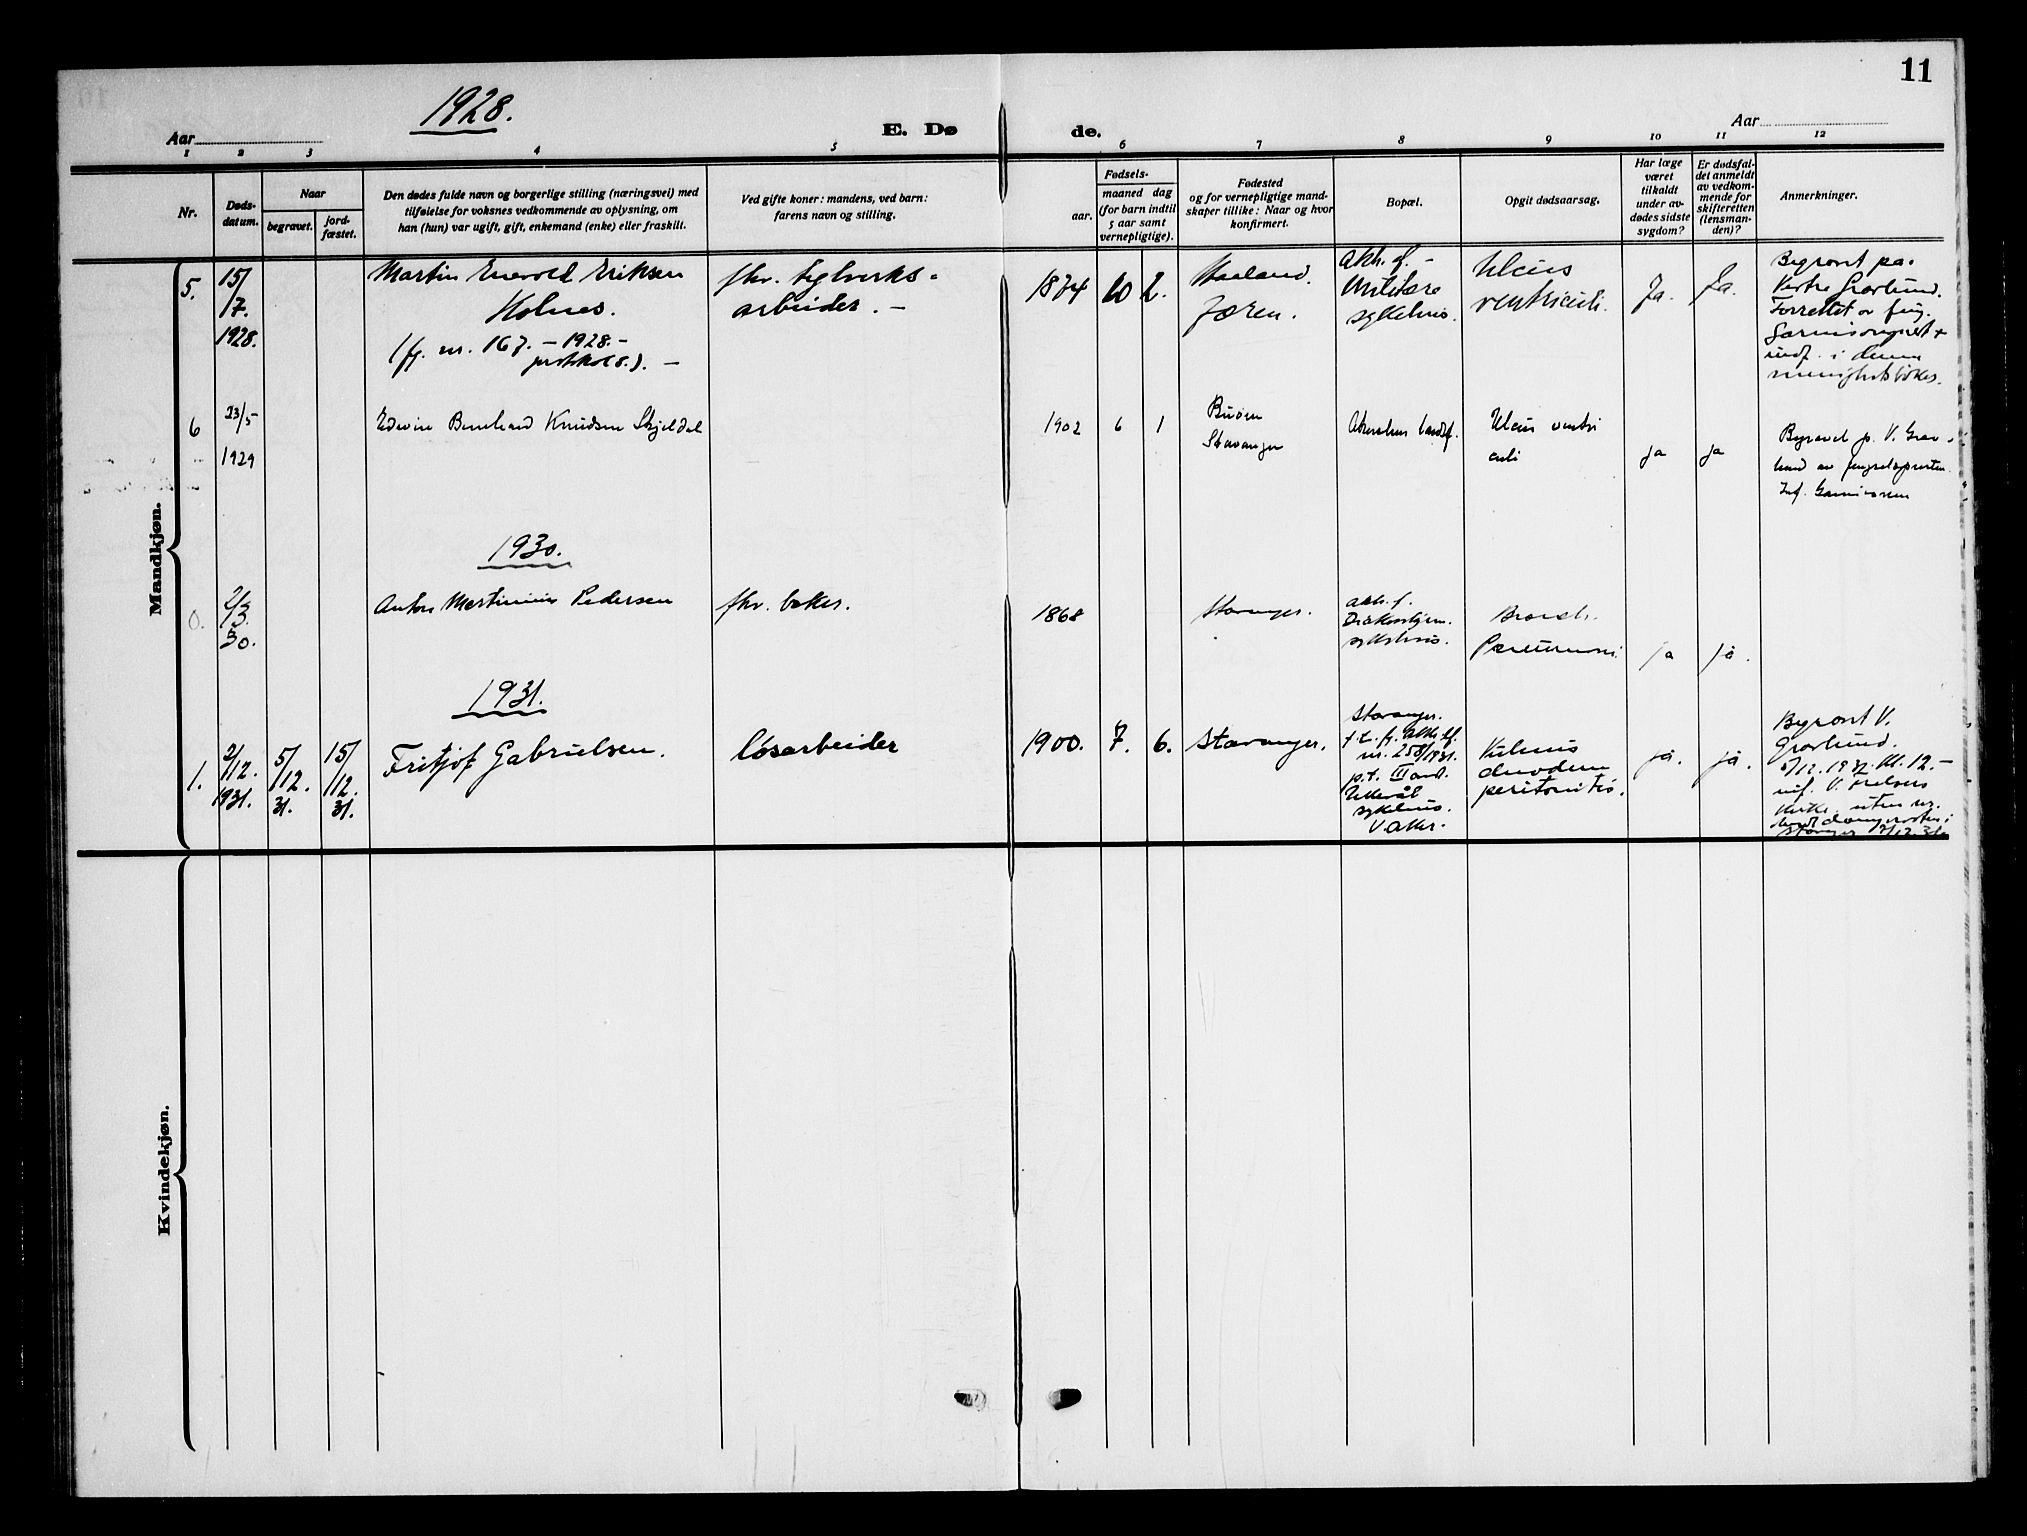 11
1928.
Aar
E. Dø
de.
Aar
1 2 3 4 5 6 7 8 9 10 11 12
Nr.
Døds-
datum.
Naar
begravet.
jord-
fæstet.
Den dødes fulde navn og borgerlige stilling (næringsvei) med
tilføielse for voksnes vedkommende av oplysning, om
han (hun) var ugift, gift, enkemand (enke) eller fraskilt.
Ved gifte koner: mandens, ved barn:
farens navn og stilling.
Fødsels-
aar.
maaned dag
(for barn indtil
5 aar samt
vernepligtige).
Fødested
og for vernepligtige mand-
skaper tillike: Naar og hvor
konfirmert.
Bopæl.
Opgit dødsaarsag.
Har læge
været
tilkaldt
under av-
dødes sidste
sygdom?
Er dødsfal-
det anmeldt
av vedkom-
mende for
skifteretten
(lensman-
den)?
Anmerkninger.
Mandkjøn.
5.
15/
7.
1928.
Martin Enevold Eriksen
Holnes.
(fg. nr. 167. - 1928. -
protokol 8.). -
fhv. teglverks-
arbeider. -
1874
10
2.
Haaland.
Jæren.
Akh. f. -
Militære
sykehus.
Ulcus
ventriculi.
Ja.
Ja.
Begravet paa
Vestre Gravlund.
Forrettet av
i denne
6
23/5
1929
Edwin Bernhard Knudsen Skjeldal
1902
6
1
Buøen
Stavanger
Akershus landsf.
Ulcus ventri
culi
ja
ja
Begravet p. V. Grav-
lund av fengselspresten
Inf. Garnisonen
1930.
0.
2/
3.
30.
Anton Martinius Pedersen
fhv. baker.
1868
Stavanger.
akh. f.
Diakonhjem.
sykehus.
Bronch.
Pneumoni
ja
ja.
1931.
1.
2/
12.
1931.
5/
12.
31.
15/
12.
31.
Fritjof Gabrielsen.
løsarbeider
1900.
7.
6.
Stavanger.
Stavanger.
f. t. fg. Akh. lf.
nr. 258/1931.
p.t. III avd.
Ullevål
sykehus.
V. Aker.
Ulcus
duodeni
peritonitis.
ja.
ja.
Begravet V.
Gravlund.
5/12. 1931. Kl. 12. -
V. Frelsers
Kirke. uten
Stavanger 15/12. 31.
Kvindekjøn.